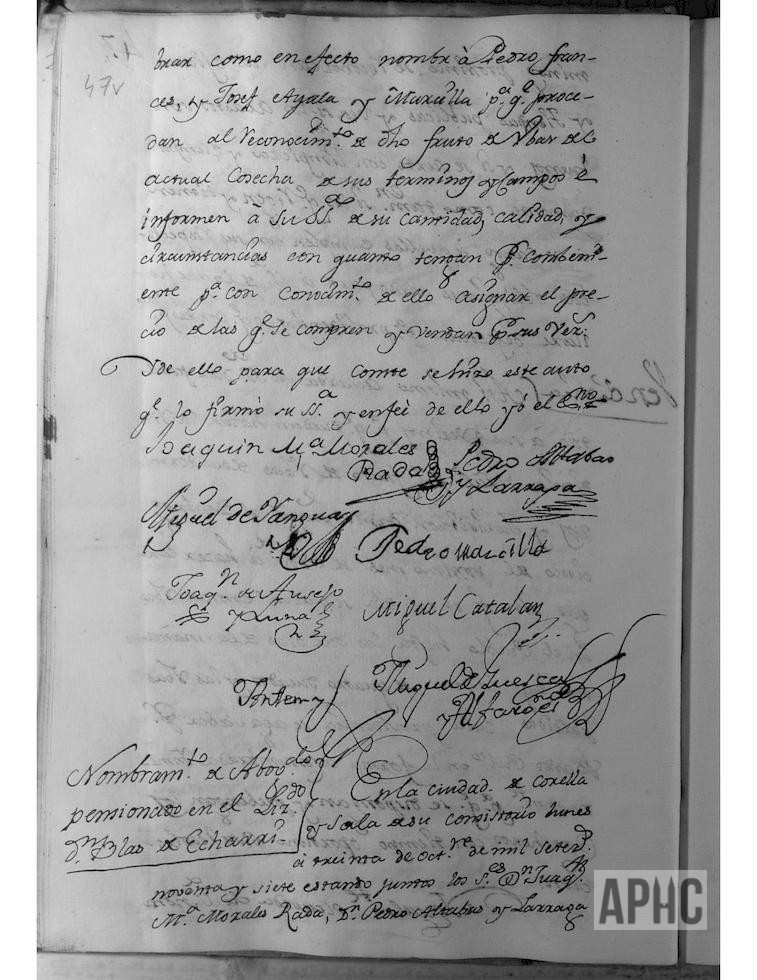 47v
brar como en efecto nombrò à Pedro fran-
ces, y Josef Ayala y Murcilla p.a q.e proce-
dan al Reconocim.to de dho fruto de Vbas del
actual Cosecha de sus terminos y Campos é
informen à Su SS.a de su cantidad, calidad, y
circunstancias con quanto tengan p.r combeni-
ente p.a con conocim.to de ello asignar el pre-
cio de las q.e se compren y vendan p.r sus Vez.s
Y de ello para que conste se hizo este auto
q.e lo firmò su SS.a y en feè de ello yó el Ess.no
Joaquin M.a Morales
Rada
Pedro Altabas
y Larraga
Miguel de Yanguas
Pedro Murcilla
Joaq.n de Ausejo
y Luna
Miguel Catalan
Antemy
Miguel de Huesca
y Alfaro es.no
Nombram.to de Abog.do
pensionado en el Liz.do
d.n Blas de Echarri
En la ciudad de Corella
y Sala de su consistorio lunes
à treinta de oct.re de mil setez.s
noventa y siete estando juntos los s.res D.n Juaq.n
M.a Morales Rada, D.n Pedro Altabas y Larraga
APHC